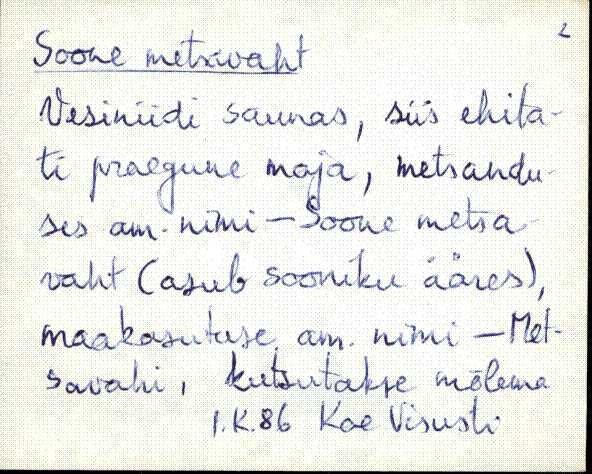 2
Soone metsavaht
Vesiniidi saunas, siis ehita-
ti praegune maja, metsandu-
ses am. nimi – Soone metsa-
vaht (asub sooniku ääres),
maakasutuse am. nimi – Met-
savahi, kutsutakse mõlema
1.K.86 Kae Visusti